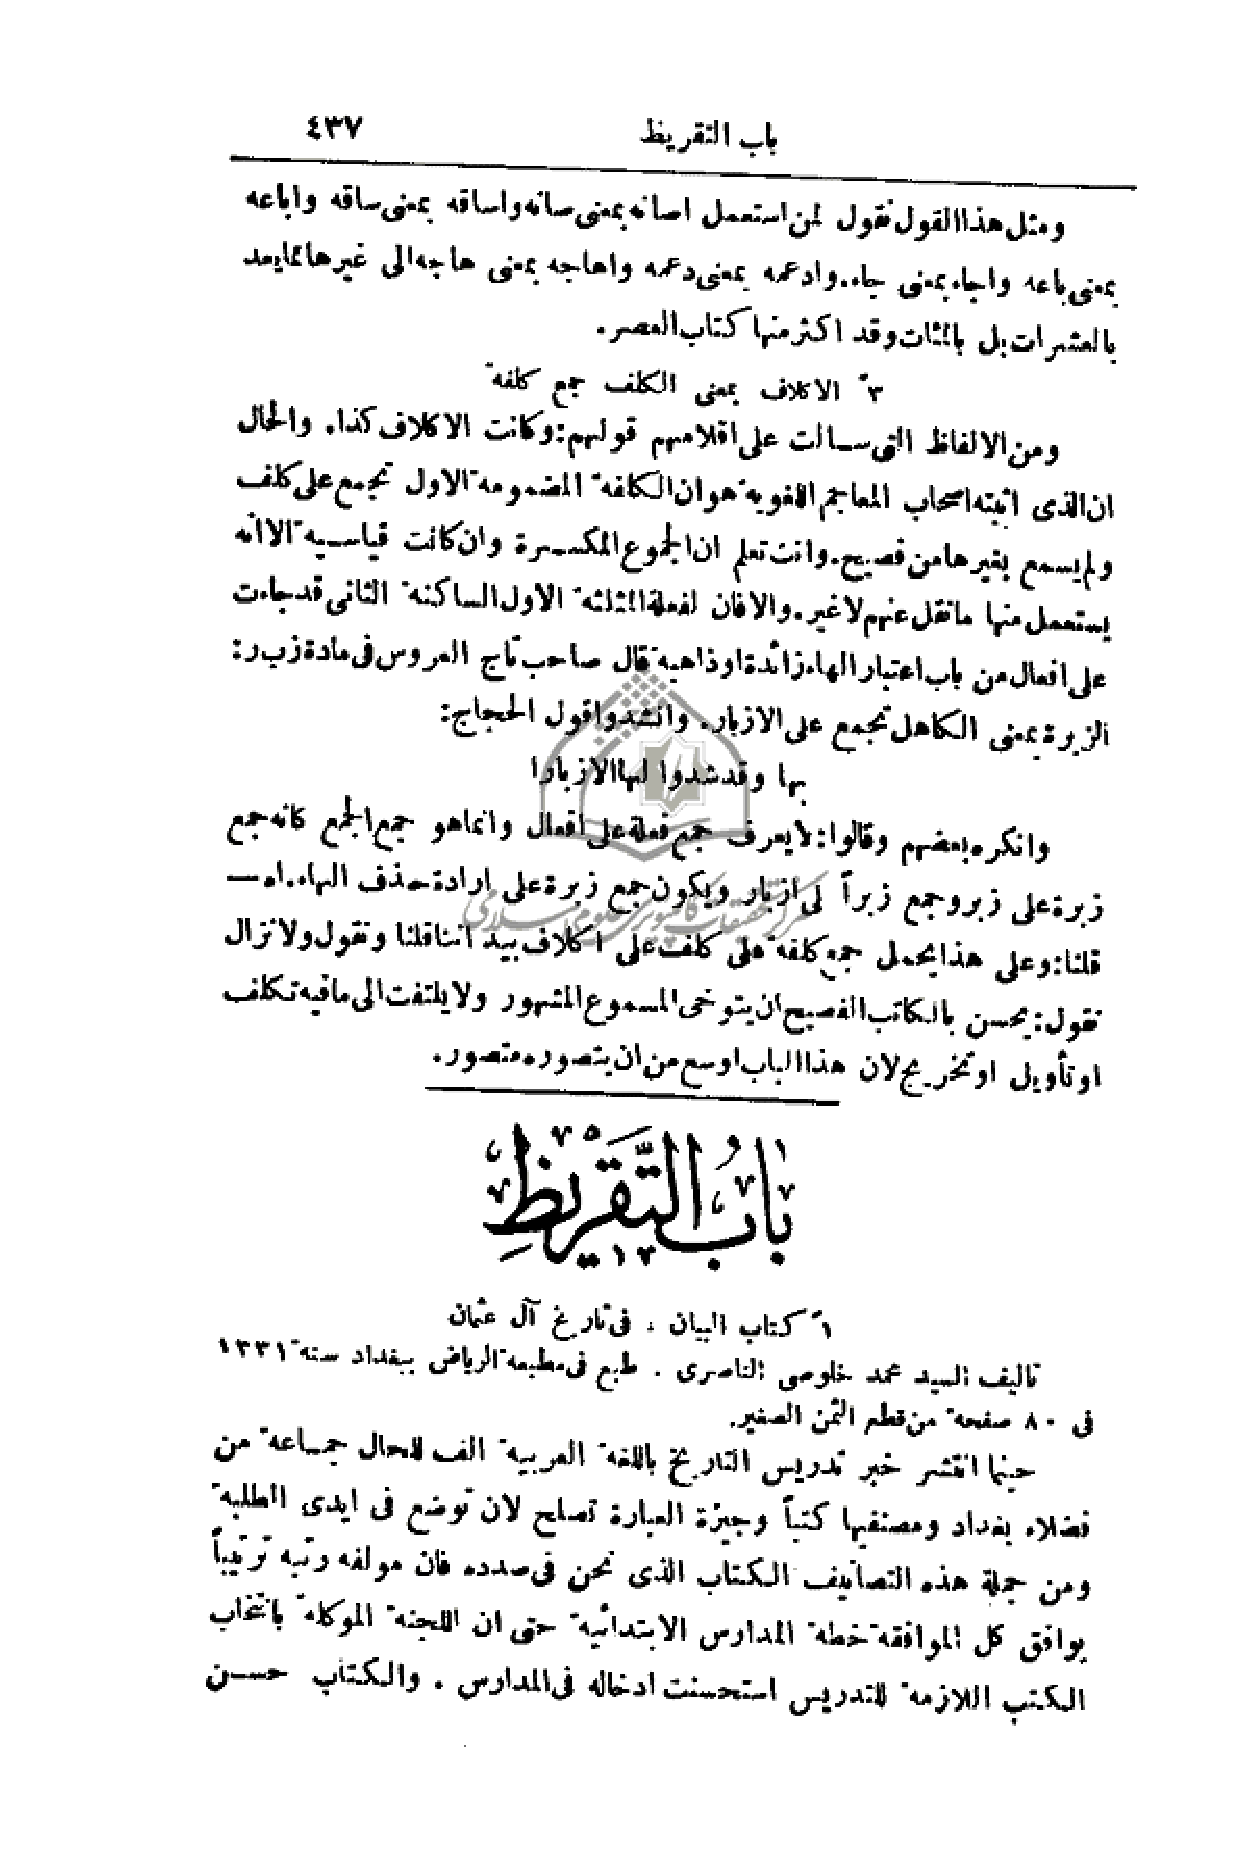 باب التقريظ ٤٣٧
ومثل هذا القول نقول لمن استعمل اصانه بمعنى صانه واساقه بمعنى ساقه واباعه
بمعنى باعه واجاء بمعنى جاء. وادعمه بمعنى دعمه واهاجه بمعنى هاجه الى غيرها مما يعد
بالعشرات بل بالمئات وقد اكثر منها كتاب العصر.
٣ً الاكلاف بمعنى الكلف جمع كلفة
ومن الالفاظ التى سالت على اقلامهم قولهم: وكانت الاكلاف كذا. والحال
ان الذى اثبته اصحاب المعاجم اللغوية هو ان الكلفة المضمومة الاول تجمع على كلف
ولم يسمع بغيرها من فصيح. وانت تعلم ان الجموع المكسرة وان كانت قياسية الا انه
يستعمل منها ما نقل عنهم لا غير. والا فان لفعلة المثلثة الاول الساكنة الثانى قد جاءت
على افعال من باب اعتبار الهاء زائدة او ذاهبة قال صاحب تاج العروس فى مادة ز ب ر:
الزبرة بمعنى الكاهل تجمع على الازبار. وانشدوا قول الحجاج:
بها وقد شدوا لها الازبارا
وانكره بعضهم وقالوا: لا يعرف جمع فعلة على افعال وانما هو جمع الجمع كانه جمع
زبرة على زبر وجمع زبراً لى ازبار ويكون جمع زبرة على ارادة حذف الهاء. اهـ
قلنا: وعلى هذا يحمل جمع كلفة على كلف على اكلاف بيد اننا قلنا ونقول ولا نزال
نقول: يحسن بالكاتب الفصيح ان يتوخى المسموع المشهور ولا يلتفت الى ما فيه تكلف
او تأويل او تخريج لان هذا الباب اوسع من ان يتصوره متصور.
مركز تحقيقات كامپيوتري علوم اسلامي
بابُ التَّقريظِ
١ً كتاب البيان ، فى تاريخ آل عثمان
تاليف السيد محمد خلوصى الناصرى . طبع فى مطبعة الرياض ببغداد سنة ١٣٣١
فى ٨٠ صفحة من قطع الثمن الصغير.
حينما انتشر خبر تدريس التاريخ باللغة العربية الف للحال جماعة من
فضلاء بغداد ومصنفيها كتباً وجيزة العبارة تصلح لان توضع فى ايدى الطلبة
ومن جملة هذه التصانيف الكتاب الذى نحن فى صدده فان مولفه رتبه ترتيباً
يوافق كل الموافقة خطة المدارس الابتدائية حتى ان اللجنة الموكلة بانتخاب
الكتب اللازمة للتدريس استحسنت ادخاله فى المدارس . والكتاب حسن